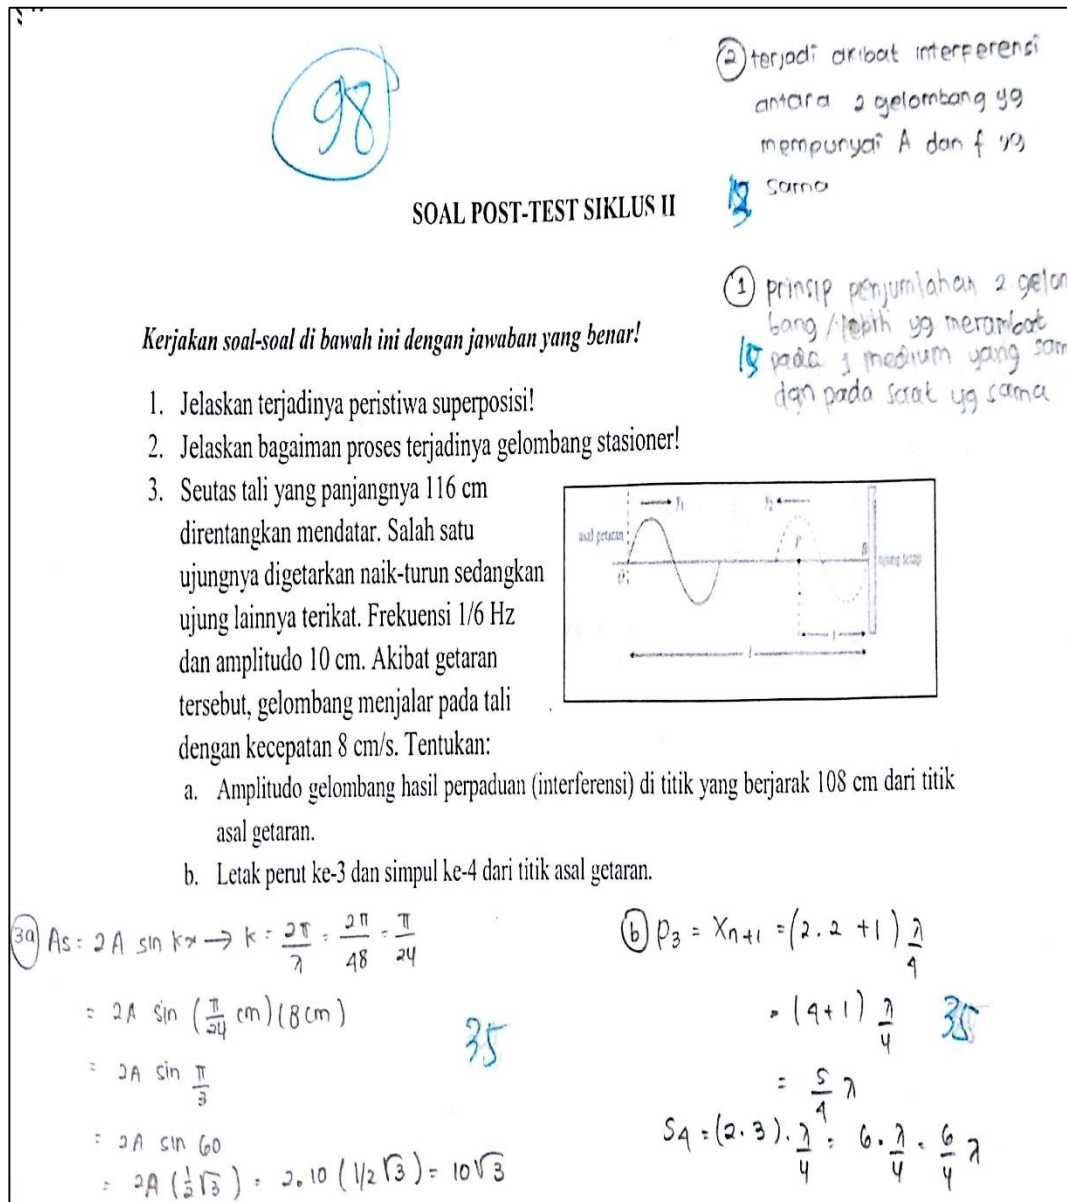 98
② terjadi akibat interferensi
antara 2 gelombang yg
mempunyai A dan f yg
sama
SOAL POST-TEST SIKLUS II
① prinsip penjumlahan 2 gelom
bang / lebih yg merambat
pada 1 medium yang sam
dan pada saat yg sama
Kerjakan soal-soal di bawah ini dengan jawaban yang benar!
1. Jelaskan terjadinya peristiwa superposisi!
2. Jelaskan bagaiman proses terjadinya gelombang stasioner!
3. Seutas tali yang panjangnya 116 cm
direntangkan mendatar. Salah satu
ujungnya digetarkan naik-turun sedangkan
ujung lainnya terikat. Frekuensi 1/6 Hz
dan amplitudo 10 cm. Akibat getaran
tersebut, gelombang menjalar pada tali
dengan kecepatan 8 cm/s. Tentukan:
y₁
y₂
asal getaran
P
B
ujung tetap
O
l
a. Amplitudo gelombang hasil perpaduan (interferensi) di titik yang berjarak 108 cm dari titik
asal getaran.
b. Letak perut ke-3 dan simpul ke-4 dari titik asal getaran.
3a As = 2A sin kx → k = 2π/λ = 2π/48 = π/24
= 2A sin (π/24 cm) (8 cm)
= 2A sin π/3
= 2A sin 60
= 2A (1/2 √3) = 2.10 (1/2 √3) = 10√3
35
ⓑ P₃ = Xn+1 = (2.2 + 1) λ/4
= (4+1) λ/4
= 5/4 λ
S4 = (2.3) . λ/4 = 6 . λ/4 = 6/4 λ
35